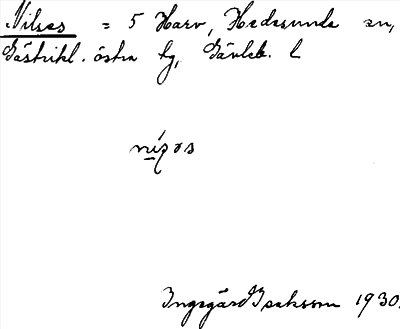 Nilses = 5 Harv, Hedesunda sn,
Gästrikl. östra tg, Gävleb. l
nizɷs
Ingegärd Isaksson 1930.